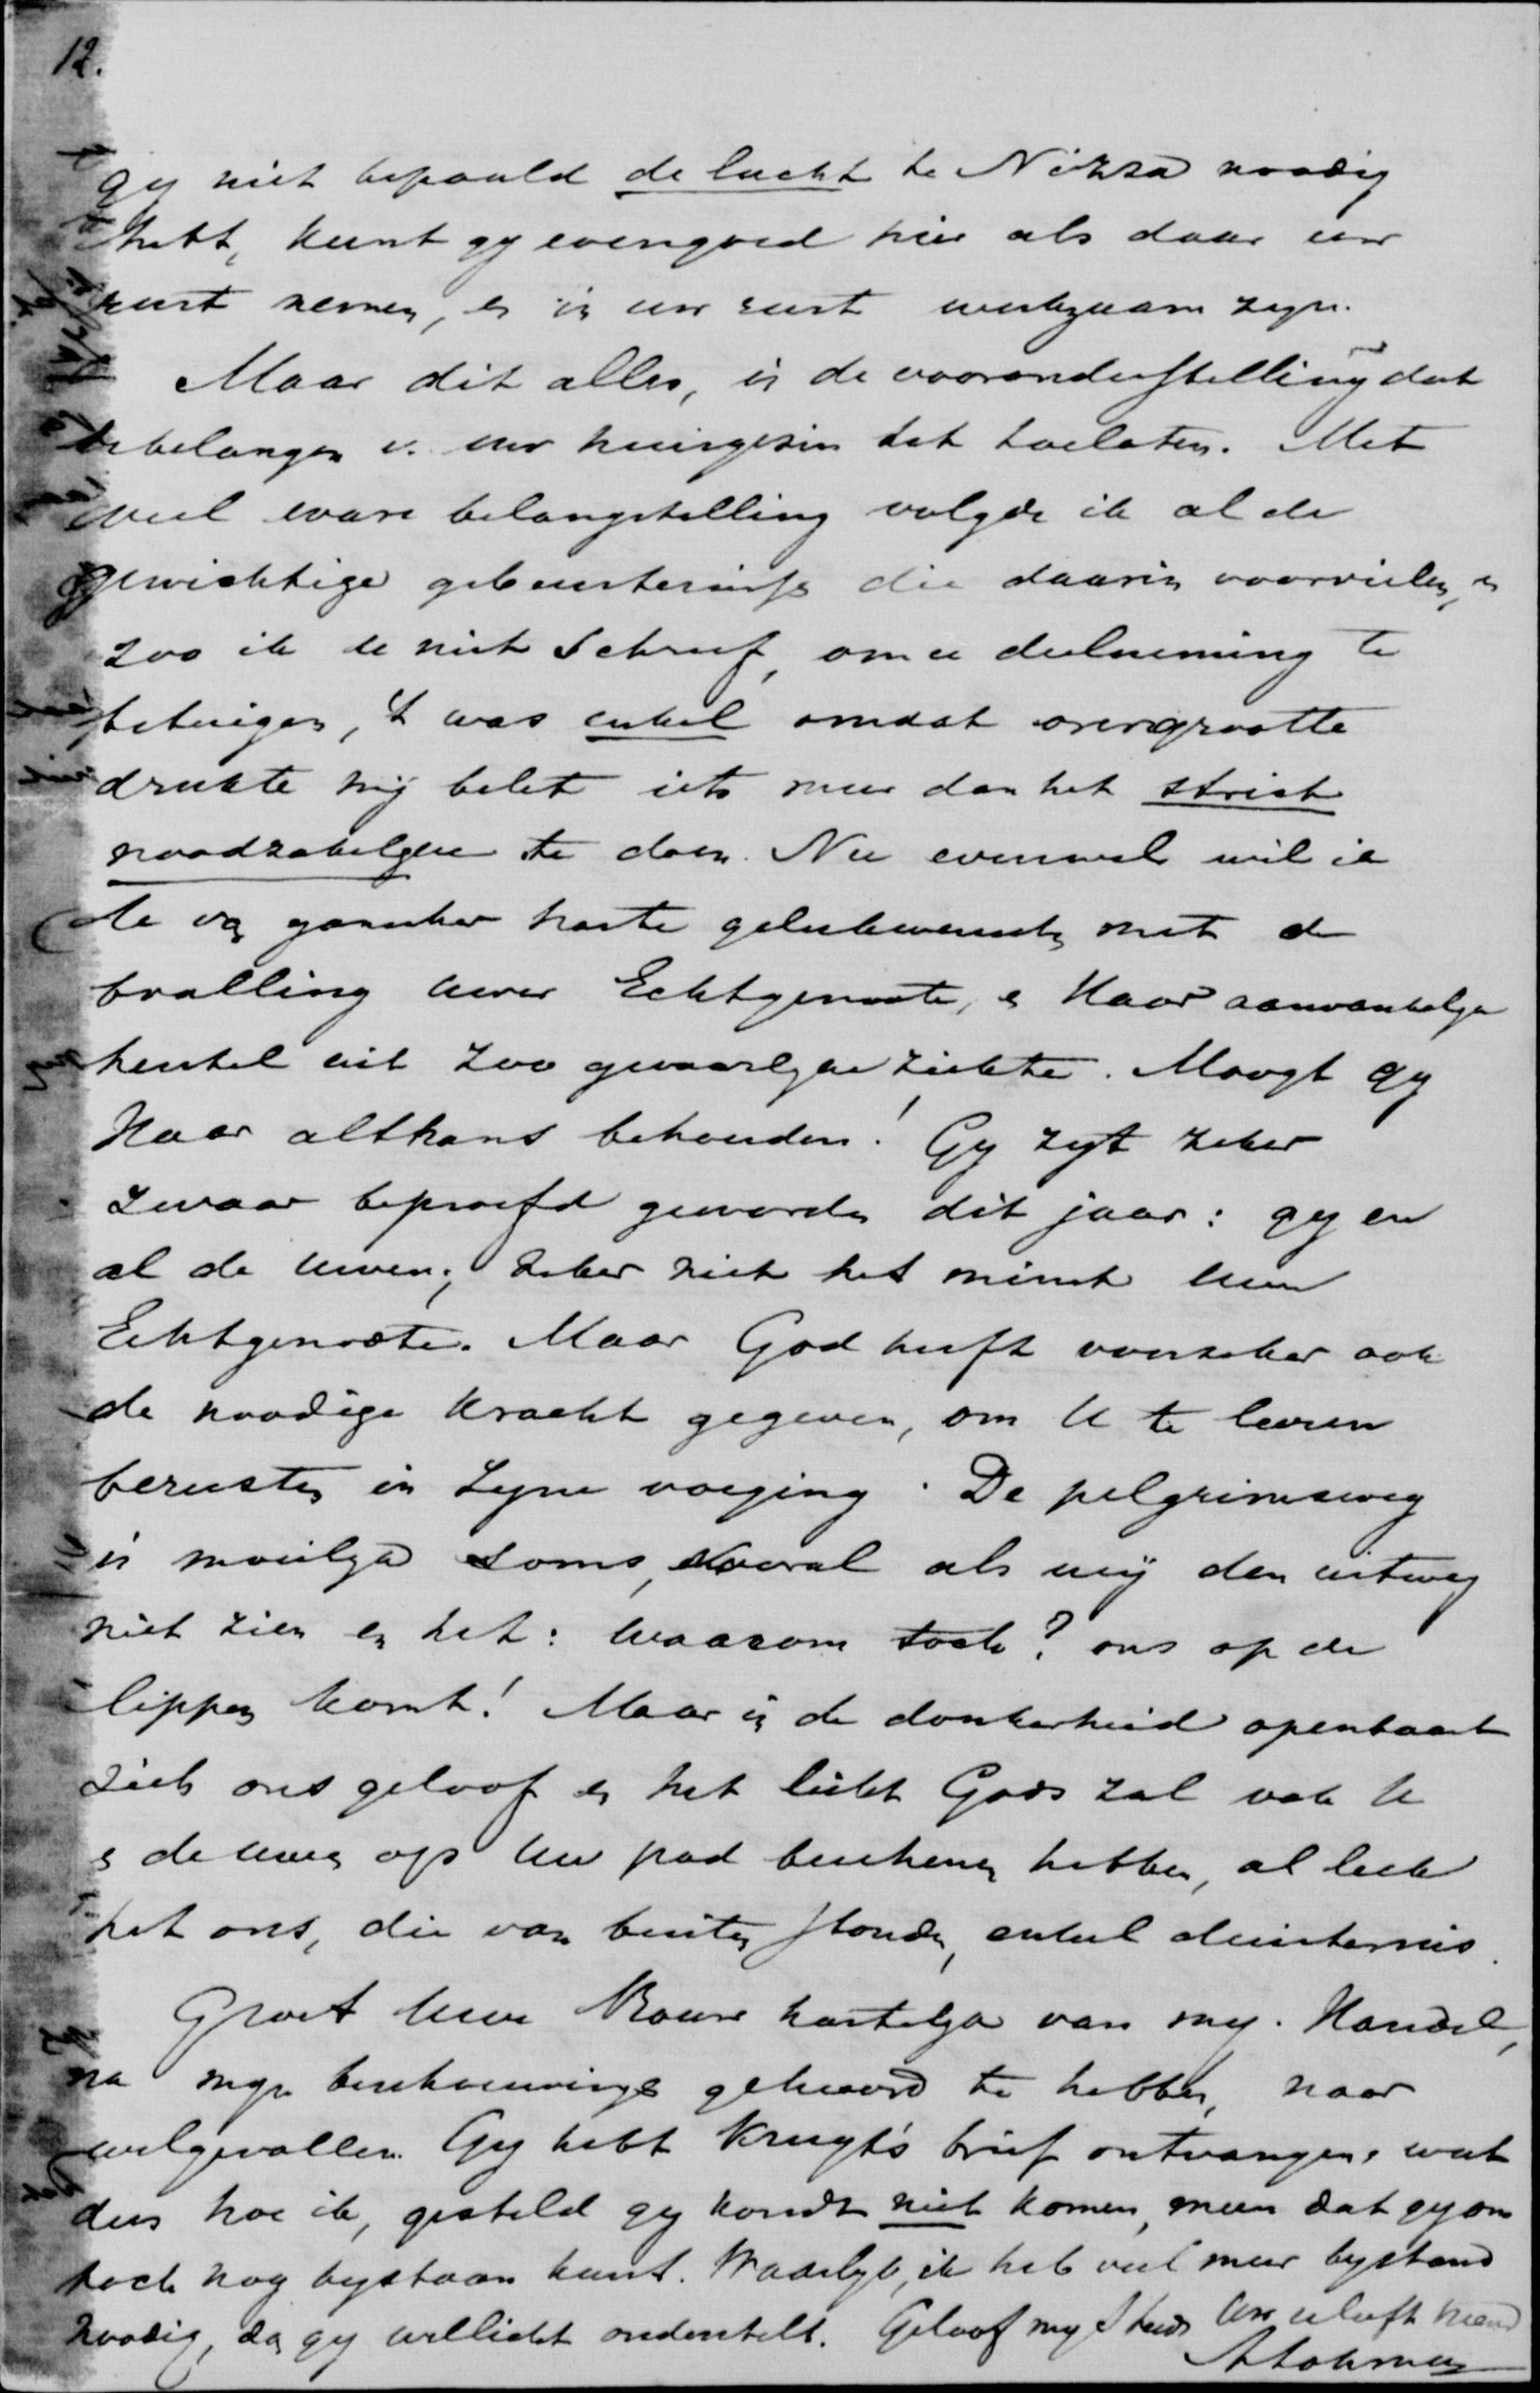 12.
gy niet bepaald de lucht te Nizza noodig
hebt, kunt gy evengoed hier als daar uw
rust nemen, en in uw rust werkzaam zyn.
Maar dit alles, in de vooronderstelling dat
de belangen v. uw huisgezin dat toelaten. Met
veel ware belangstelling volgde ik al de
gewichtige gebeurtenissen die daarin voorvielen, en
zoo ik u niet schreef, om u deelneming te
betuigen, 't was enkel omdat overgroote
drukte mij belet iets meer dan het strict
noodzakelyke te doen. Nu evenwel wil ik
u van ganscher harte gelukwenschen met de
bevalling uwer Echtgenoote, en Haar aanvankelyk
herstel uit zoo gevaarlyke ziekte. Moogt gy
Haar althans behouden! Gy zyt zeker
zwaar beproefd geworden dit jaar: gy en
al de uwen; zeker niet het minst uwe
Echtgenoote. Maar God heeft voorzeker ook
de noodige kracht gegeven, om U te leeren
berusten in Zyne voeging. De pelgrimsweg
is moeilyk soms, vooral als wij den uitweg
niet zien en het: waarom toch? ons op de
lippen komt! Maar in de donkerheid openbaart
zich ons geloof en het licht Gods zal ook U
en de uwen op uw pad beschenen hebben, al leek
het ons, die van buiten stonden, enkel duisternis.
Groet Uwe Vrouw hartelyk van my. Handel,
na myn beschouwingen gehoord te hebben, naar
welgevallen. Gy hebt Kruyt's brief ontvangen, weet
dus hoe ik, gesteld gy kondt niet komen, meen dat gy ons
toch nog bystaan kunt. Waarlyk, ik heb veel meer bystand
noodig, dan gy wellicht onderstelt. Geloof my steeds Uw